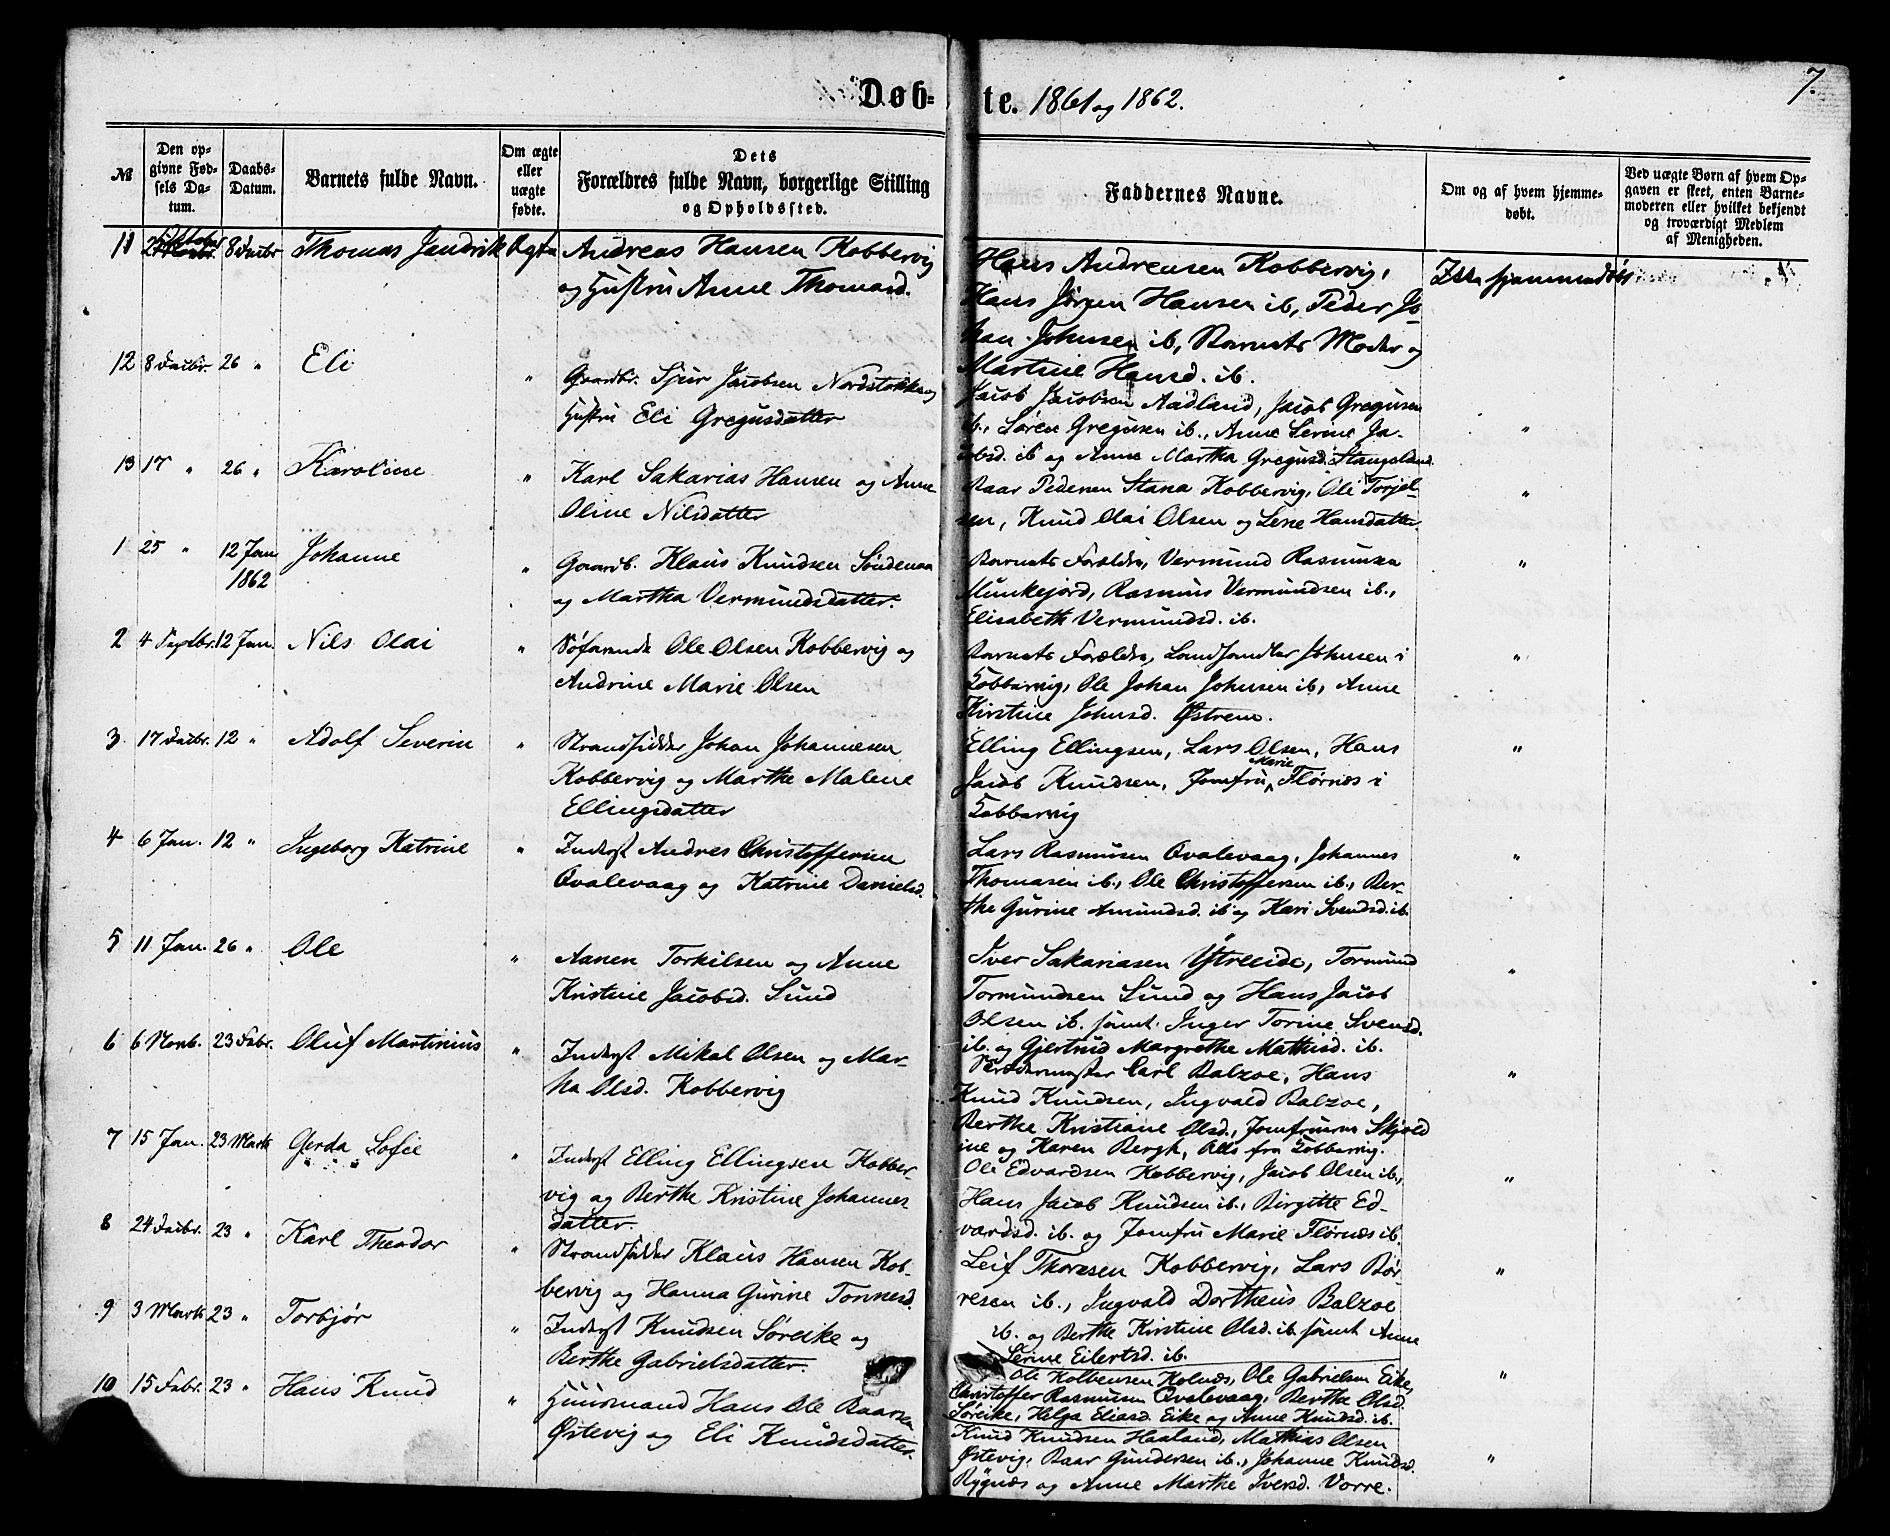 Døb-te. 1861 og 1862.
7.
№
Den opgivne Fødsels Datum.
Daabs-Datum.
Barnets fulde Navn.
Om ægte eller uægte fødte.
Dets Forældres fulde Navn, borgerlige Stilling og Opholdssted.
Faddernes Navne.
Om og af hvem hjemmedøbt.
Ved uægte Børn af hvem Opgaven er skeet, enten Barnemoderen eller hvilket bekjendt og troværdigt Medlem af Menigheden.
11 8 Decbr Thomas Hendrik Ægte Andreas Hansen Kobbervig
og Hustru Anne Thomasd.
Hans Andreasen Kobbervig,
Hans Jørgen Hansen ib, Peder Jo-
han Johnsen ib, Barnets Moder og
Martine Hansd. ib.
Ikke hjemmedøbt
12 8 Decbr. 26 " Eli " Gaardbr. Sjur Jacobsen Nordstokke og
Hustru Eli Gregusdatter
Jacob Jacobsen Aadland, Jacob Gregusen
ib., Søren Gregusen ib., Anne Serine Ja-
cobsd. ib og Anne Martha Gregusd. Stangeland
"
13 17 " 26 " Karoline " Karl Sakarias Hansen og Anne
Oline Nilsdatter
Baar Pedersen Stana Kobbervig, Ole Torjel-
sen, Knud Olai Olsen og Lene Hansdatter.
"
1 25 " 12 Jan 1862 Johanne " Gaardb. Klaus Knudsen Søndenaa
og Martha Vermundsdatter.
Barnets Forældre, Vermund Rasmusen
Munkejord, Rasmus Vermundsen ib.,
Elisabeth Vermundsd. ib.
"
2 4 Septbr. 12 Jan. Nils Olai " Søfarende Ole Olsen Kobbervig og
Andrine Marie Olsen
Barnets Forældre, Landhandler Johnsen i
Kobbervig, Ole Johan Johnsen ib, Anne
Kirstine Johnsd. Østrem.
"
3 17 Decbr. 12 " Adolf Severin " Strandsidder Johan Johannesen
Kobbervig og Marthe Malene
Ellingsdatter
Elling Ellingsen, Lars Olsen, Hans
Jacob Knudsen, Jomfru Marie Flørnæs i
Kobbervig
"
4 6 Jan. 12 " Ingeborg Katrine " Inderst Andres Christoffersen
Qvalevaag og Katrine Danielsd.
Lars Rasmusen Qvalevaag, Johannes
Thomasen ib., Ole Christoffersen ib., Ber-
the Gurine Amundsd. ib og Kari Svendsd. ib.
"
5 11 Jan. 26 " Ole " Aanen Torkilsen og Anne
Kristine Jacobsd. Sund
Iver Sakariasen Ytreeide, Tormund
Tormundsen Sund og Hans Jacob
Olsen ib. samt Inger Torine Svensd.
ib. og Gjertrud Margrethe Mathisd. ib.
"
6 6 Novb. 23 Febr. Oluf Martinius " Inderst Mikal Olsen og Mar-
ha Olsd. Kobbervig
Carl Balzoe, Hans
Knud Knudsen, Ingvald Balzoe,
Berthe Kristiane Olsd., Jomfruerne Skjold
ine og Haren Bergh, Alle fra Kobbervig.
"
7 15 Jan. 23 Marts Gerda Sofie " Inderst Elling Ellingsen Kobber-
vig og Berthe Kristine Johannes-
datter.
Ole Edvardsen Kobbervig, Jacob Olsen ib.,
Hans Jacob Knudsen ib., Birgitte Ed-
vardsd. ib. og Jomfru Marie Flørnæs ib.
"
8 24 Decbr. 23 " Karl Theodor " Strandsidder Klaus Hansen Kob-
bervig og Hanna Gurine Tonnesd.
Leif Thoresen Kobbervig, Lars Bør-
resen ib., Ingvald Dortheus Balzoe
ib. og Berthe Kirstine Olsd. ib. samt Anne
Serine Eilertsd. ib.
"
9 3 Marts 23 " Torbjør " Inderst Knudsen Søreike og
Berthe Gabrielsdatter.
Ole Kolbensen Kolnæs, Ole Gabrielsen Eike,
Christoffer Rasmusen Qvalevaag, Berthe Olsd.
Søreike, Helga Eliasd. Eike og Anne Knudsd. ib.
"
10 15 Febr. 23 " Hans Knud " Huusmand Hans Ole Baarsen
Østevig og Eli Knudsdatter.
Knud Knudsen Haaland, Mathias Olsen
Østevig, Baar Gundersen ib., Johanne Knudsd.
Rygnæs og Anne Marthe Iversd. Vorre.
"